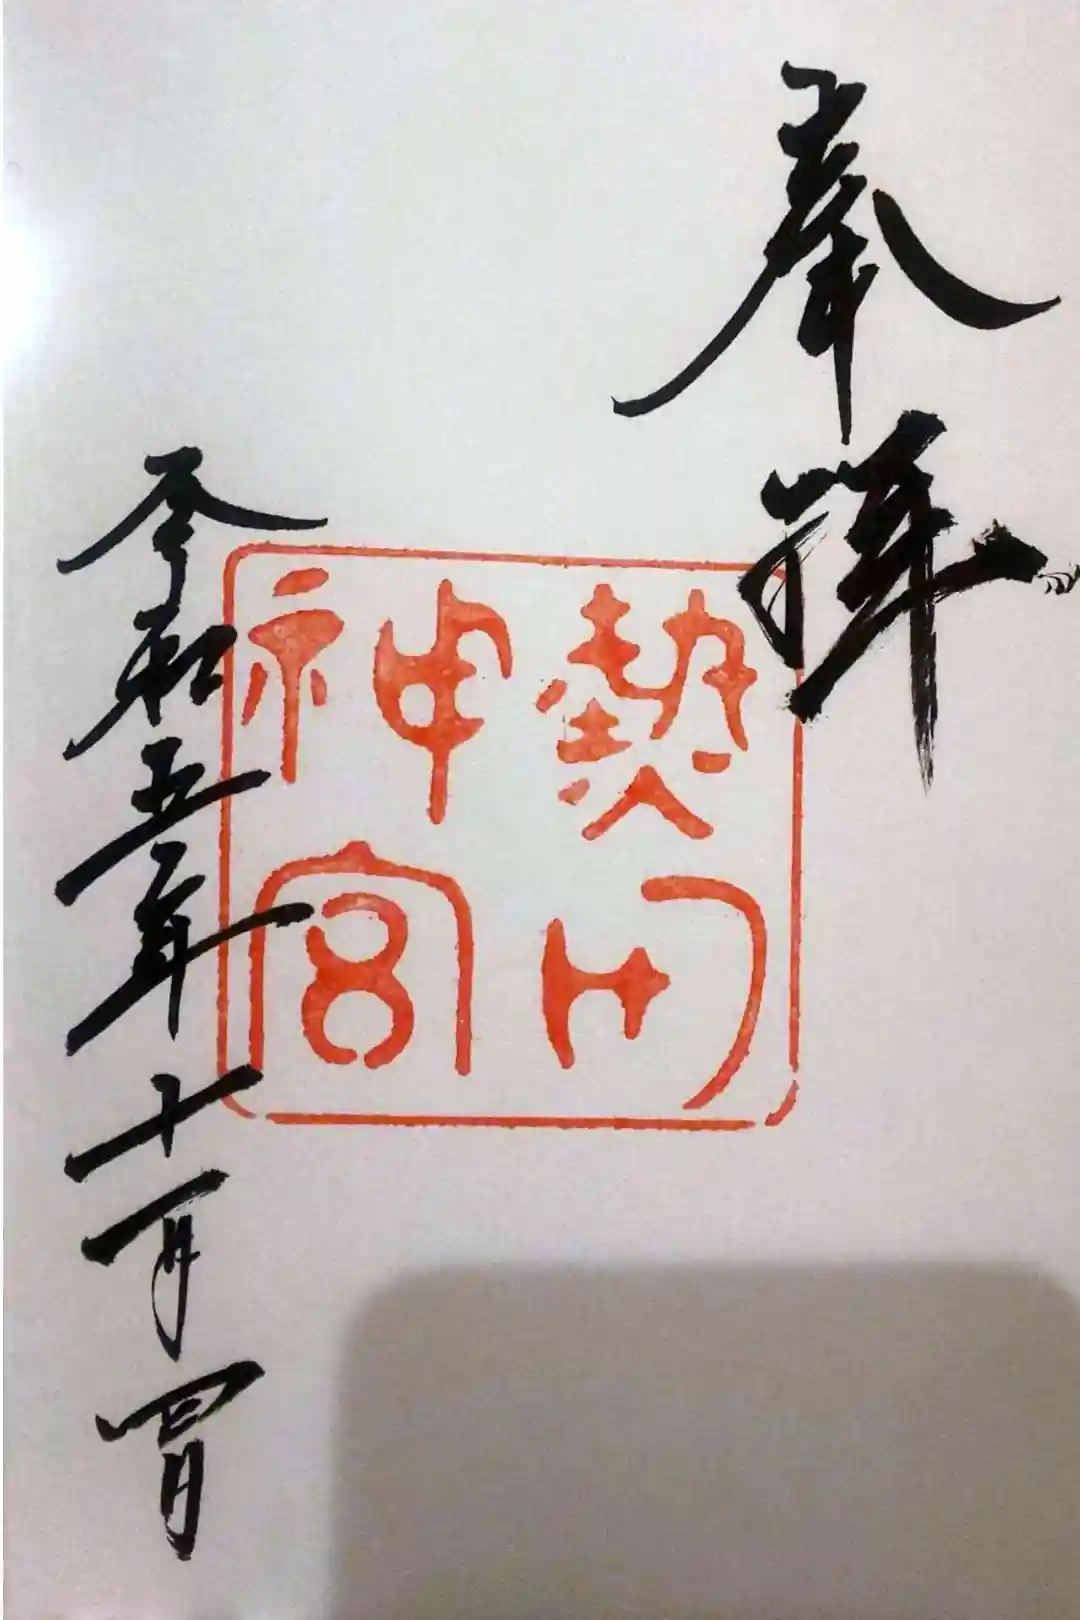 奉拝
熱田
神宮
令和五年十一月四日